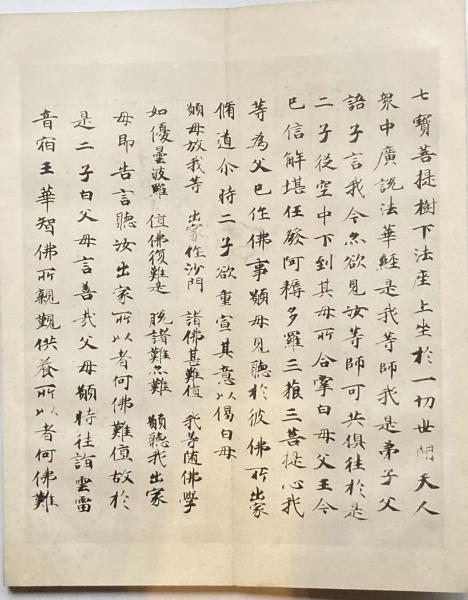 七寶菩提樹下法座上坐於一切世間天人
衆中廣說法華經是我等師我是弟子父
語子言我今亦欲見汝等師可共俱往於是
二子從空中下到其母所合掌白母父王今
已信解堪任發阿耨多羅三藐三菩提心我
等為父已作佛事願母見聽於彼佛所出家
脩道尒時二子欲重宣其意以偈白母
願母放我等 出家作沙門 諸佛甚難值 我等隨佛學
如優曇波羅 值佛復難是 脫諸難亦難 願聽我出家
母即告言聽汝出家所以者何佛難值故於
是二子白父母言善哉父母願時往詣雲雷
音宿王華智佛所親覲供養所以者何佛難